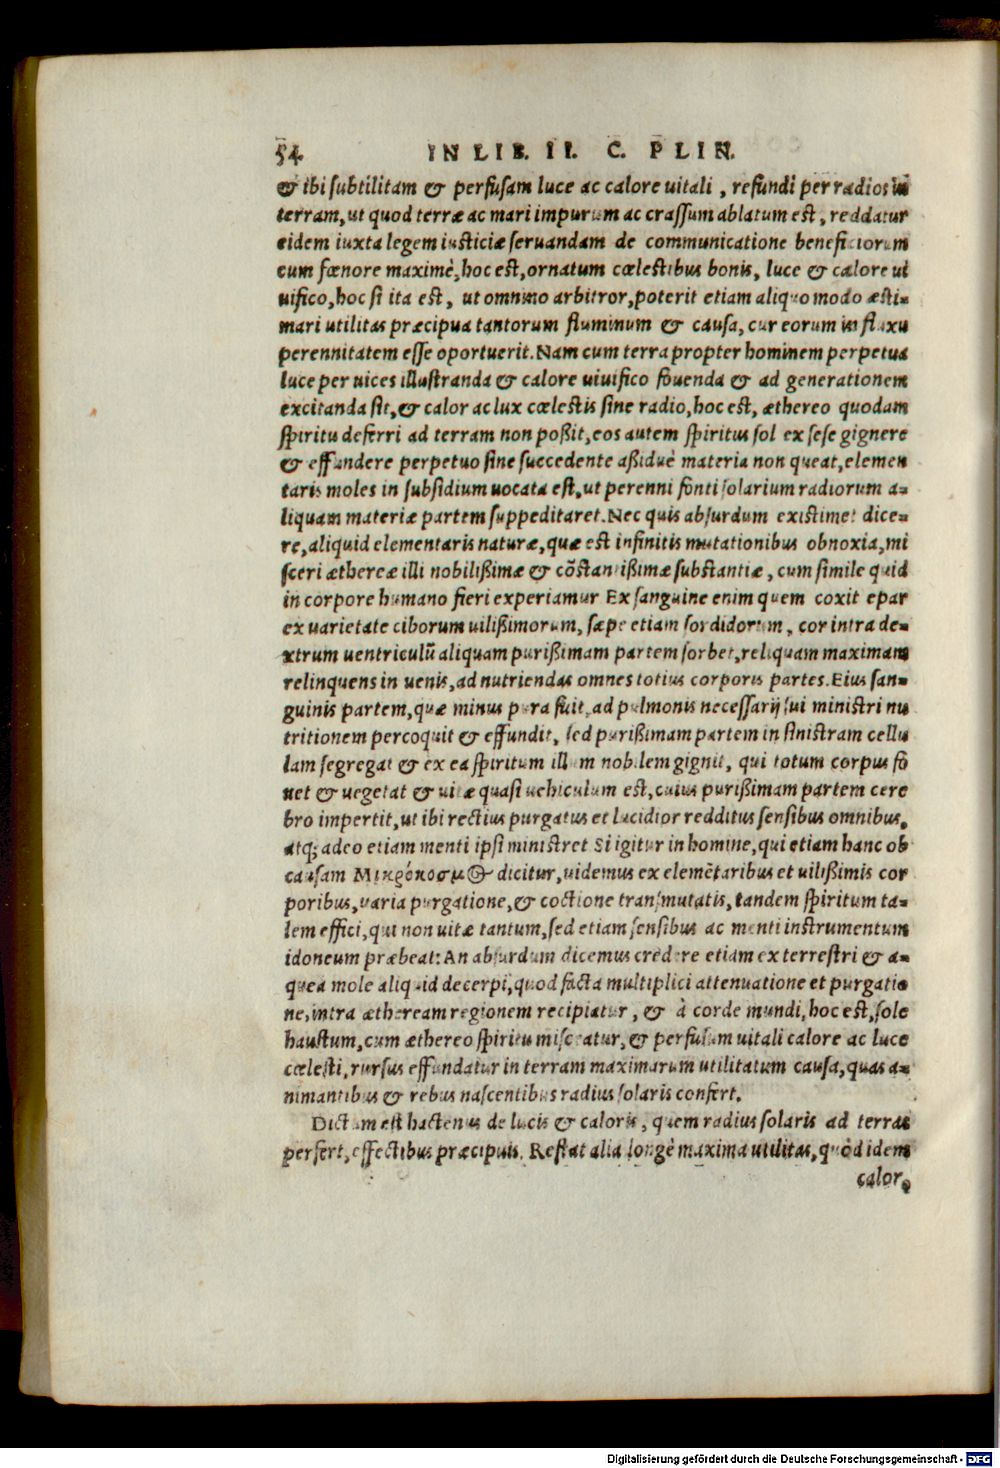 54 IN LIB. II. C. PLIN.
& ibi subtilitam & perfusam luce ac calore uitali, refundi per radios in
terram, ut quod terræ ac mari impurum ac crassum ablatum est, reddatur
eidem iuxta legem iusticiæ seruandam de communicatione beneficiorum
cum fœnore maximè, hoc est, ornatum cœlestibus bonis, luce & calore ui
uifico, hoc si ita est, ut omnino arbitror, poterit etiam aliquo modo æsti-
mari utilitas præcipua tantorum fluminum & causa, cur eorum influxu
perennitatem esse oportuerit. Nam cum terra propter hominem perpetua
luce per uices illustranda & calore uiuifico fouenda & ad generationem
excitanda sit, & calor ac lux cœlestis sine radio, hoc est, æthereo quodam
spiritu deferri ad terram non poßit, eos autem spiritus sol ex sese gignere
& effundere perpetuo sine succedente aßiduè materia non queat, elemen
taris moles in subsidium uocata est, ut perenni fonti solarium radiorum a-
liquam materiæ partem suppeditaret. Nec quis absurdum existimet dice-
re, aliquid elementaris naturæ, quæ est infinitis mutationibus obnoxia, mi
sceri æthereæ illi nobilißimæ & cõstantißimæ substantiæ, cum simile quid
in corpore humano fieri experiamur Ex sanguine enim quem coxit epar
ex uarietate ciborum uilißimorum, sæpe etiam sordidorum, cor intra de-
xtrum uentriculũ aliquam purißimam partem sorbet, reliquam maximam
relinquens in uenis, ad nutriendas omnes totius corporis partes. Eius san-
guinis partem, quæ minus pura fuit, ad pulmonis necessarij sui ministri nu
tritionem percoquit & effundit, sed purißimam partem in sinistram cellu
lam segregat & ex ea spiritum illum nobilem gignit, qui totum corpus fo
uet & uegetat & uitæ quasi uehiculum est, cuius purißimam partem cere
bro impertit, ut ibi rectius purgatus et lucidior redditus sensibus omnibus,
atq; adeo etiam menti ipsi ministret Si igitur in homine, qui etiam hanc ob
causam Μικρόκοσμος dicitur, uidemus ex elemẽtaribus et uilißimis cor
poribus, uaria purgatione, & coctione transmutatis, tandem spiritum ta-
lem effici, qui non uitæ tantum, sed etiam sensibus ac menti instrumentum
idoneum præbeat: An absurdum dicemus credere etiam ex terrestri & a-
quea mole aliquid decerpi, quod facta multiplici attenuatione et purgatio
ne, intra ætheream regionem recipiatur, & à corde mundi, hoc est, sole
haustum, cum æthereo spiritu misceatur, & perfusum uitali calore ac luce
cœlesti, rursus effundatur in terram maximarum utilitatum causa, quas a-
nimantibus & rebus nascentibus radius solaris confert.
Dictum est hactenus de lucis & caloris, quem radius solaris ad terras
perfert, effectibus præcipuis. Restat alia longè maxima utilitas, quòd idem
calor,
Digitalisierung gefördert durch die Deutsche Forschungsgemeinschaft - DFG